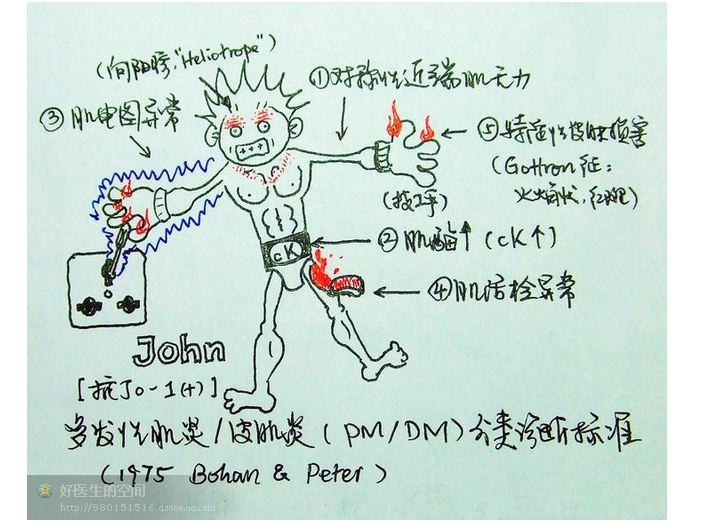 (向阳疹,"Heliotrope")
①对称性近端肌无力
③肌电图异常
⑤特征性皮肤损害
(Gottron征:
火焰状,红斑)
(技工手)
②肌酶↑(CK↑)
CK
④肌活检异常
John
[抗JO-1(+)]
多发性肌炎/皮肌炎(PM/DM)分类诊断标准
(1975 Bohan & Peter)
好医生的空间
http://980151516.qzone.qq.com